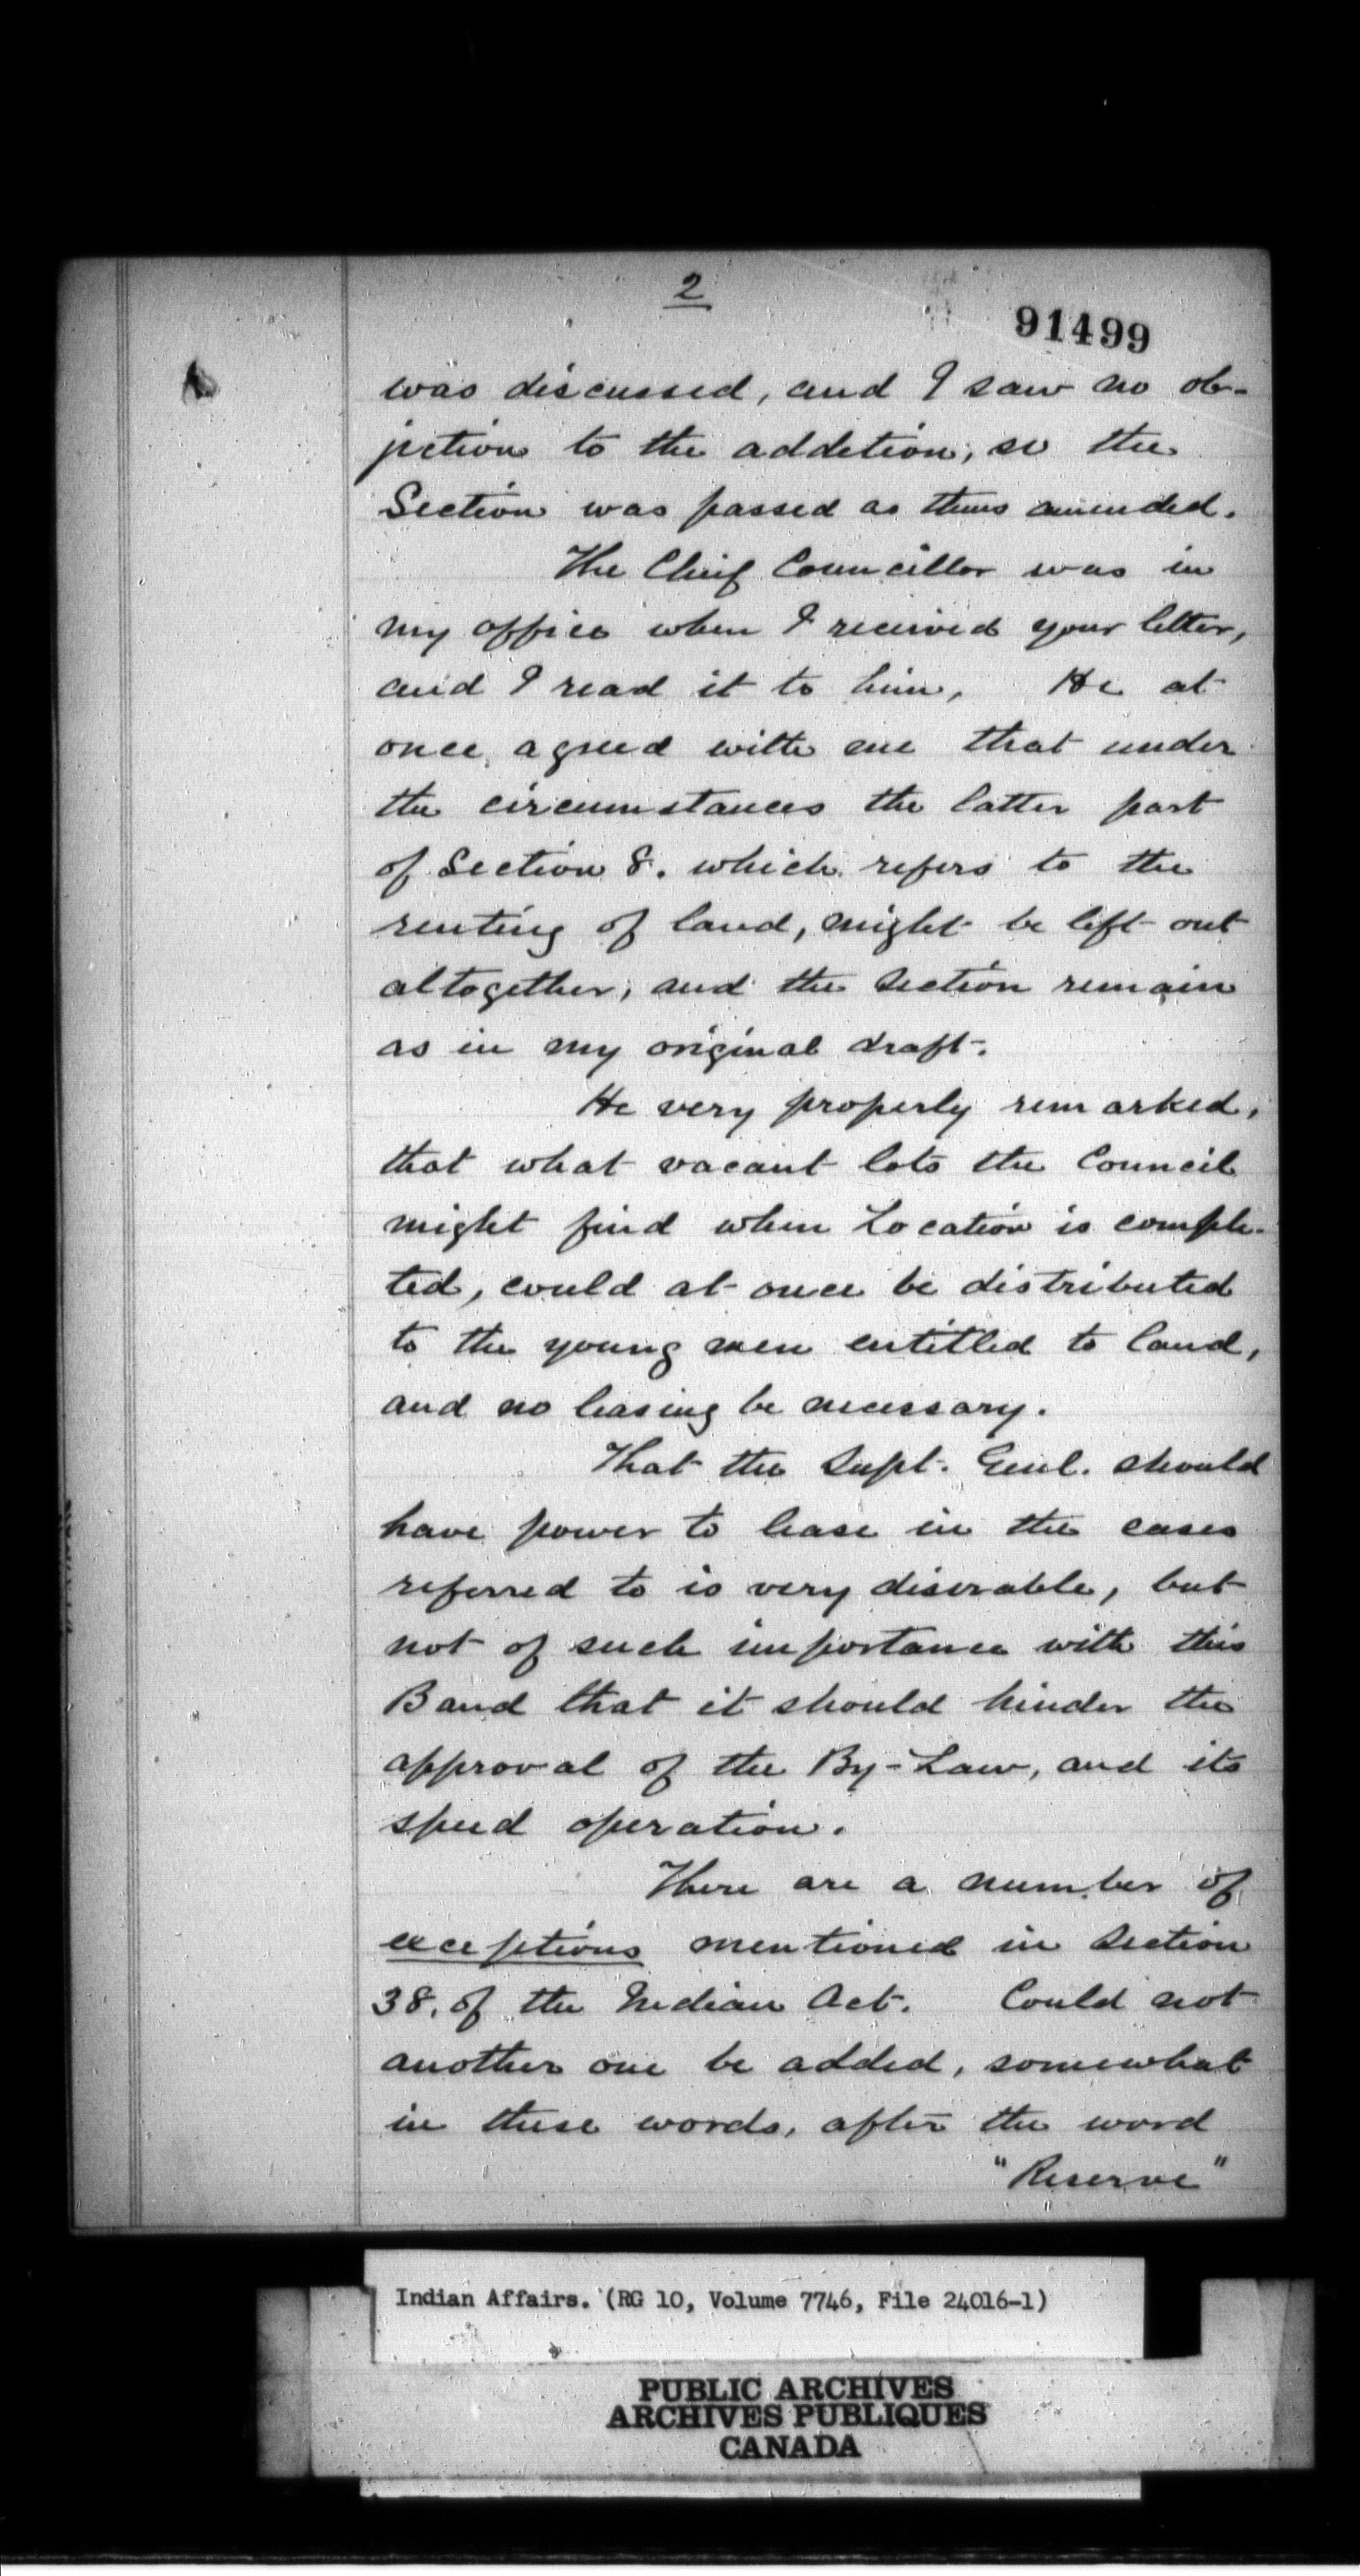 2
91499
was discussed, and I saw no ob-
jection to the addition, so the
Section was passed as thus amended.
The Chief Councillor was in
my office when I received your letter,
and I read it to him, He at
once, agreed with me that under
the circumstances the latter part
of Section 8. which refers to the
renting of land, might be left out
altogether, and the Section remain
as in my original draft.
He very properly remarked,
that what vacant lots the Council
might find when Location is comple-
ted, could at once be distributed
to the young men entitled to land,
and no leasing be necessary.
That the Supt. Genl. should
have power to lease in the cases
referred to is very diserable, but
not of such importance with this
Band that it should hinder the
approval of the By-Law, and its
speed operation.
There are a number of
exceptions mentioned in Section
38. of the Indian Act. Could not
another one be added, somewhat
in these words, after the word
"Reserve"
Indian Affairs. (RG 10, Volume 7746, File 24016-1)
PUBLIC ARCHIVES
ARCHIVES PUBLIQUES
CANADA